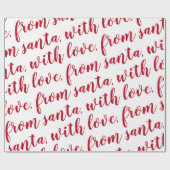 from santa, with love,
from santa, with love, from santa,
with love, from santa, with love, from
santa, with love, from santa, with
love, from santa, with love, from santa,
with love, from santa, with
love, from santa,